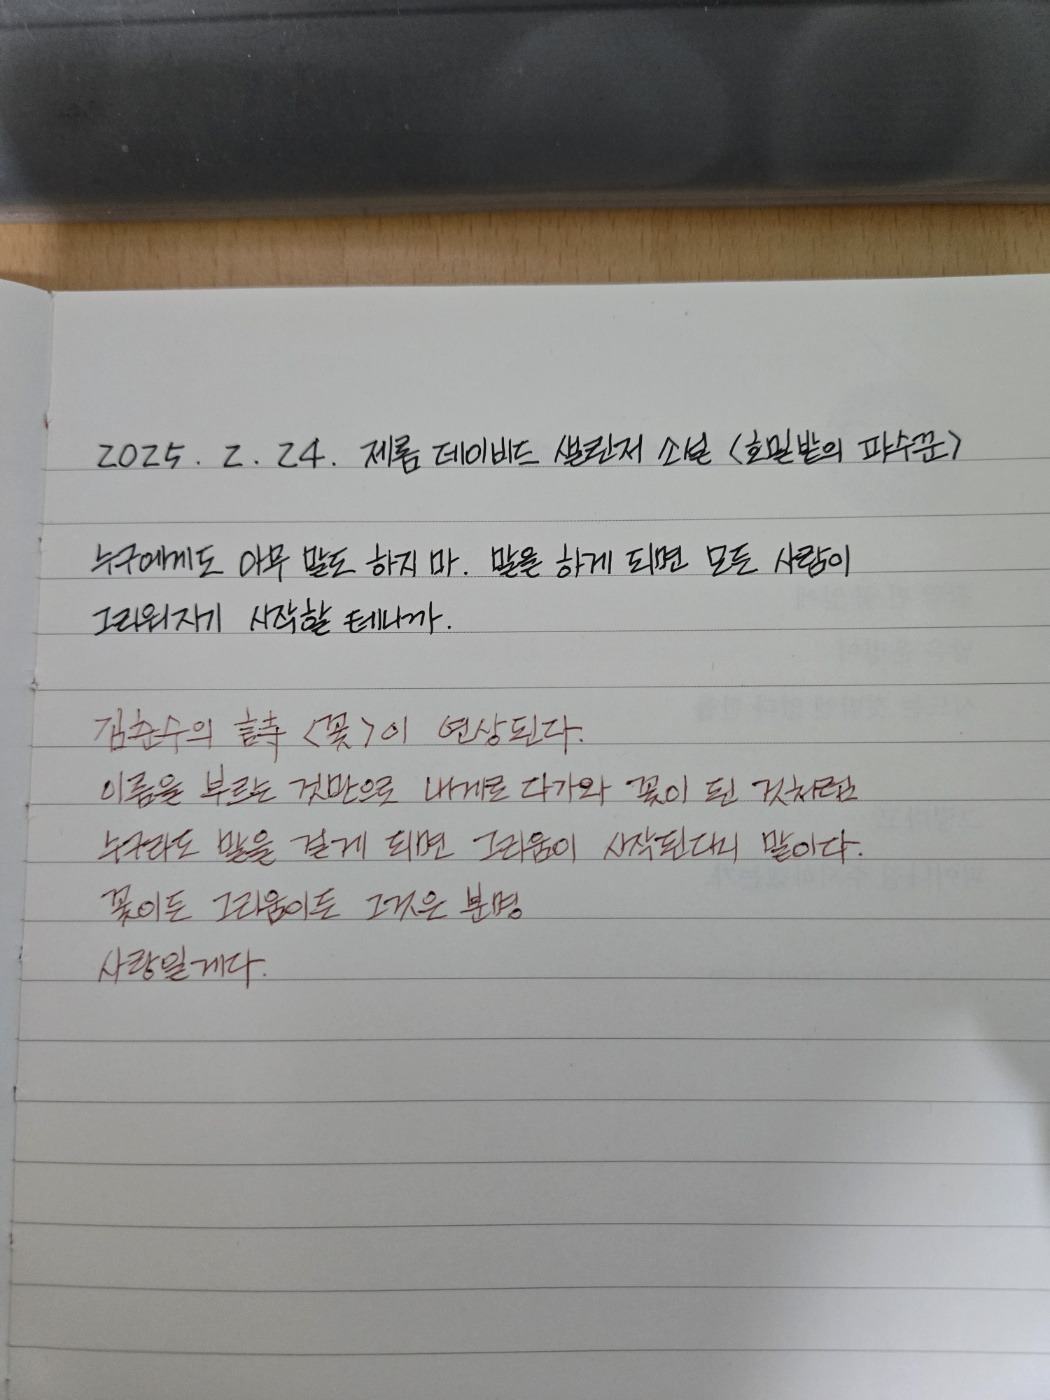 2025. 2. 24. 제롬 데이비드 샐린저 소설 <호밀밭의 파수꾼>
누구에게도 아무 말도 하지 마. 말을 하게 되면 모든 사람이
그리워지기 시작할 테니까.
김춘수의 詩 <꽃>이 연상된다.
이름을 부르는 것만으로 내게로 다가와 꽃이 된 것처럼
누구라도 말을 걸게 되면 그리움이 시작된다니 말이다.
꽃이든 그리움이든 그것은 분명
사랑일게다.